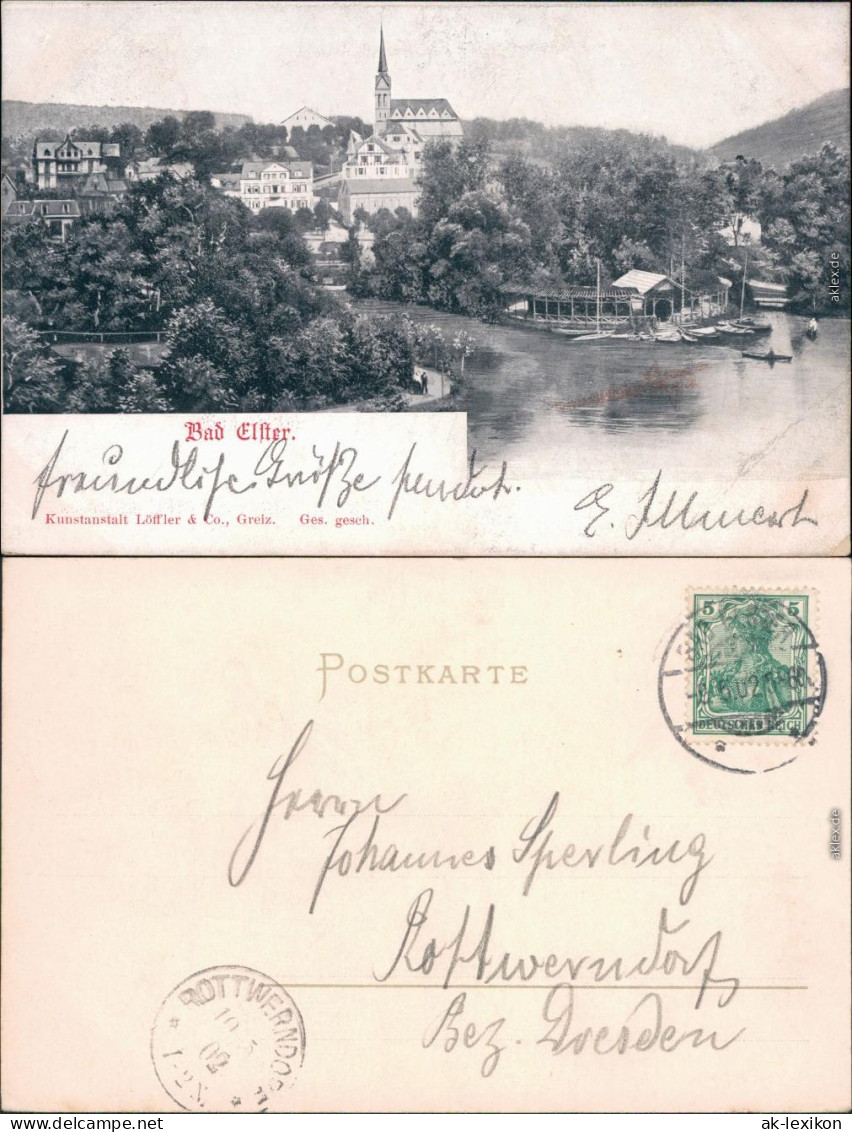 Bad Elster.
freundliche Grüße sendet
Kunstanstalt Löffler & Co., Greiz. Ges. gesch.
aklex.de
POSTKARTE
5 5
DEUTSCHES REICH
02
Herrn
Johannes Sperling
Rottwerndorf
Bez. Dresden
ROTTWERNDORF
10 5
02
1-2 N.
aklex.de
ak-lexikon